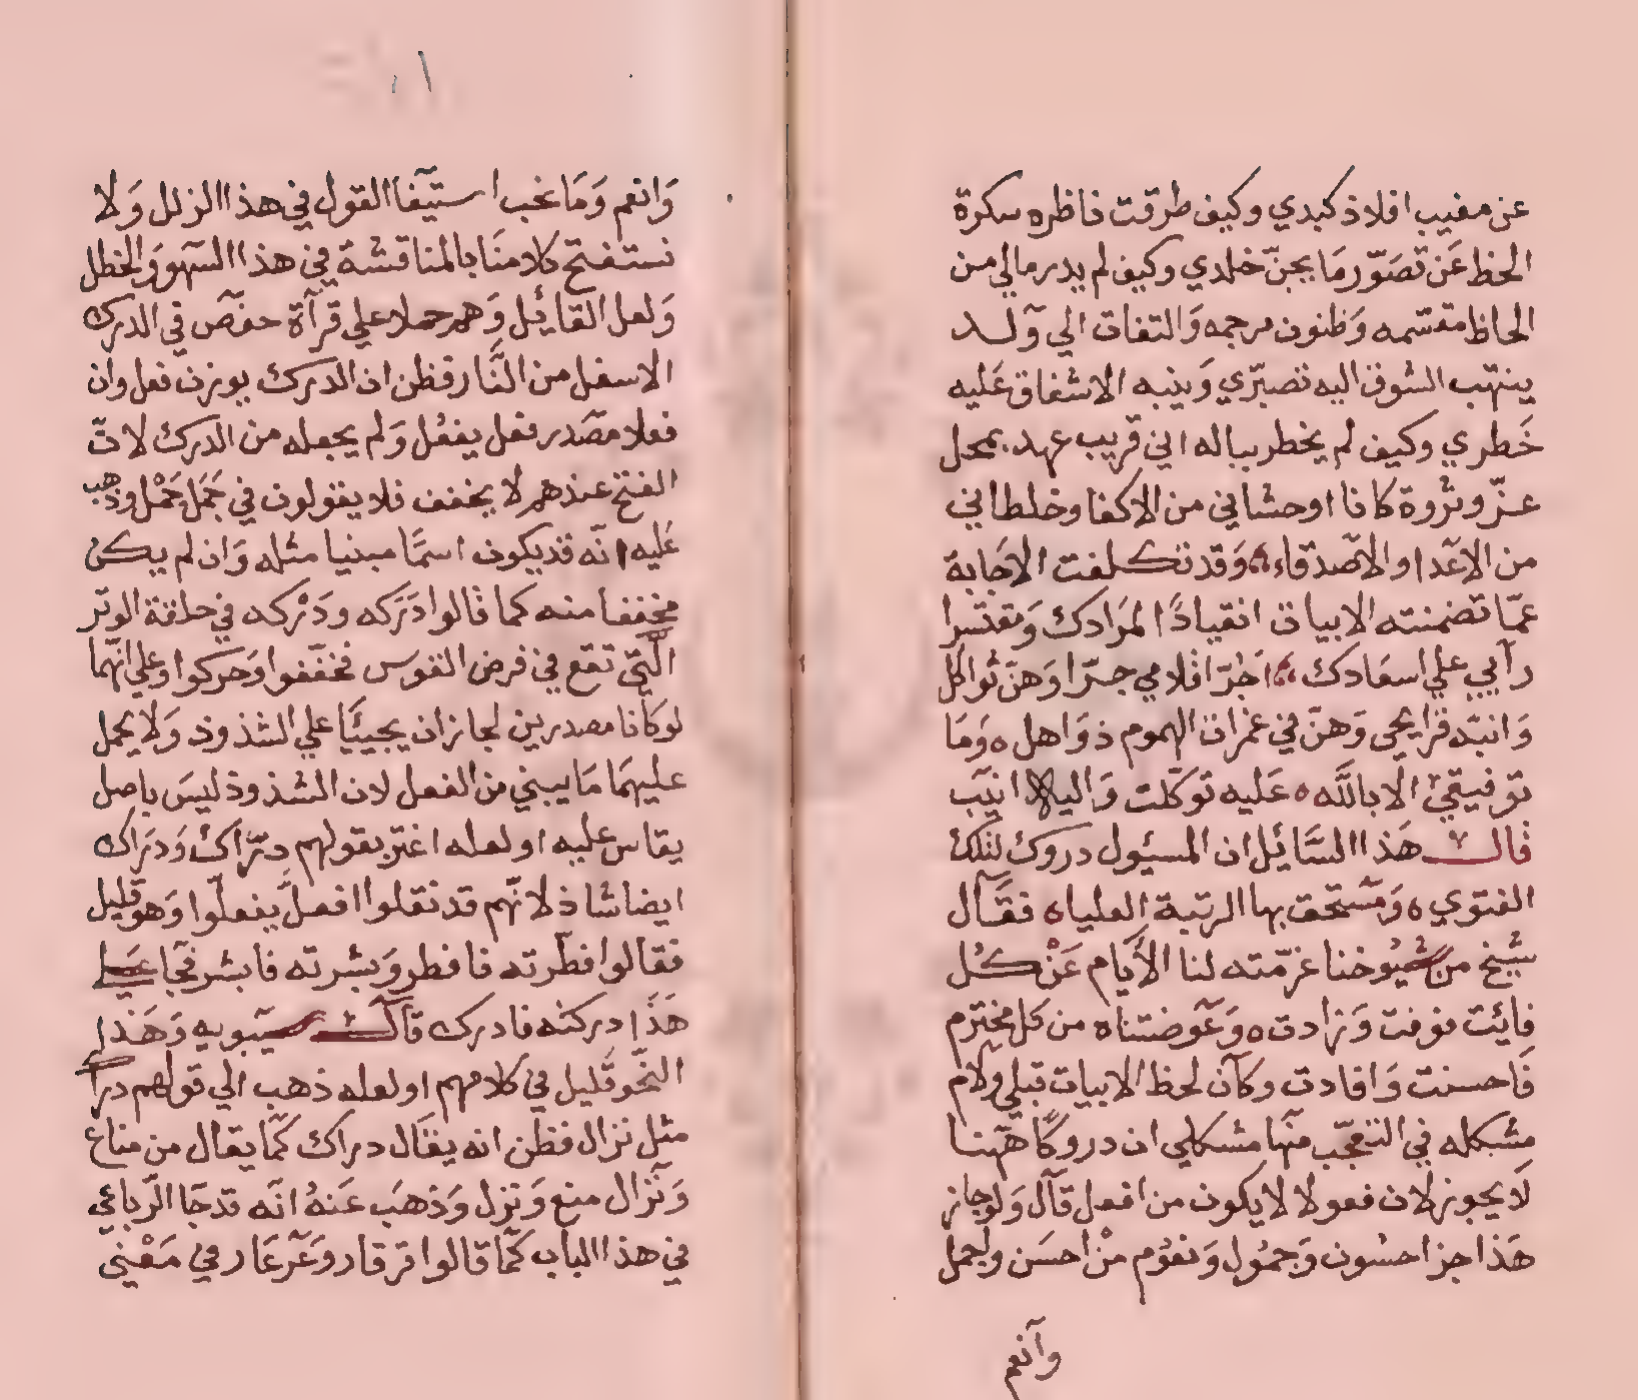 عن مغيب افلاذ كبدي وكيف طرقت ناظره سكرة
الحظ عَن تصَوّر مَا يجنّ خلدي وكيف لم يدر مالي من
الحاظ مقسّمه وَظنون مرجمه وَالتفات الي وَلد
ينتهب الشوق اليه تصبّري وَينبه الاشفاق عَليه
خَطري وكيف لم يخطر بباله اني قريب عهد بمحل
عزّ وثروة كانا اوحشاني من الاكفا وخلطاني
من الاعدا والاصدقاء وَقد تكلفت الاجَابة
عمّا تضمنته الابيات انقيادًا لمرَادك وَمقتسرا
رأيي علي اسعَادك اجُرّ اقلامي جرّا وَهنّ نواكل
وَانبّه قرايحي وَهنّ في غمرات الهموم ذوَاهل ه وَمَا
توفيقيَ الا باللَّه ه عَليه توكّلت وَاليه انيب
قالـــ هَذا السَّائل ان المسئول دروك لتلك
الفتوي ه وَمستحق بها الرتبة العليا ه فقَال
شيخ من شيُوخنا غرّمته لنا الأيَام عَنْ كُل
فائت فوفت وَزادت ه وَعَوضتناه من كل مخترم
فَاحسنت وَافادت وكَان لحظ الابيات قبلي ولام
مشكله في التعجّب منها مشكلي ان دروكًا ههنا
لَا يجوز لان فعولا لا يكون من افعل قَال وَلو جاز
هَذا جز احسُون وَجمُول وَنعوُم منْ احسَن وَاجمل
وأنعم
وَانعم وَمَا نحب استيفا القول في هذا الزلل وَلا
نستفتح كلامنَا بالمناقشة في هذا السّهو وَالخطل
وَلعل القائل وَهم حملا علي قرآة حفص في الدرك
الاسفل من النَّار فظن ان الدرك بوزن فعل وان
فعلا مصَدر فعل يفعل وَلم يجعله من الدرك لانّ
الفتح عندهم لا يخفف فلا يقولون في جَمَل جَمْل وذهب
عَليه انّه قد يكون اسمًا مبنيا مثله وَان لم يكن
مخففا منه كما قالوا دَرَكه ودَرْكه في حلقة الوتر
الَّتي تقع في فرض القوس فخفّفوا وَحركوا وعلي انّهما
لو كَانا مصدرين لجاز ان يجيئَا علي الشذوذ وَلا يحمل
عليهمَا مَا يبني من الفعل لان الشذوذ ليسَ باصل
يقاس عليه او لعله اغتر بقولهم دِرّاك وَدرَاك
ايضا شاذ لانّهم قد نقلوا افعل يفعلّوا وَهو قليل
فقالوا فطّرته فافطر وَبشرته فابشر فجَا علي
هَذَا دركته فادرك قَالـــ سيبويه وَهَذا
النّحو قليل في كلامهم او لعله ذهب الي قولهم دراك
مثل نزال فظن انه يقَال دراك كمَا يقال من مناع
وَنَزال منع وَنزل وَذهَب عَنهُ انَّه قد جَا الرّباعي
في هذا الباب كمَا قالوا قرقار وَعَرعَار في مَعْني